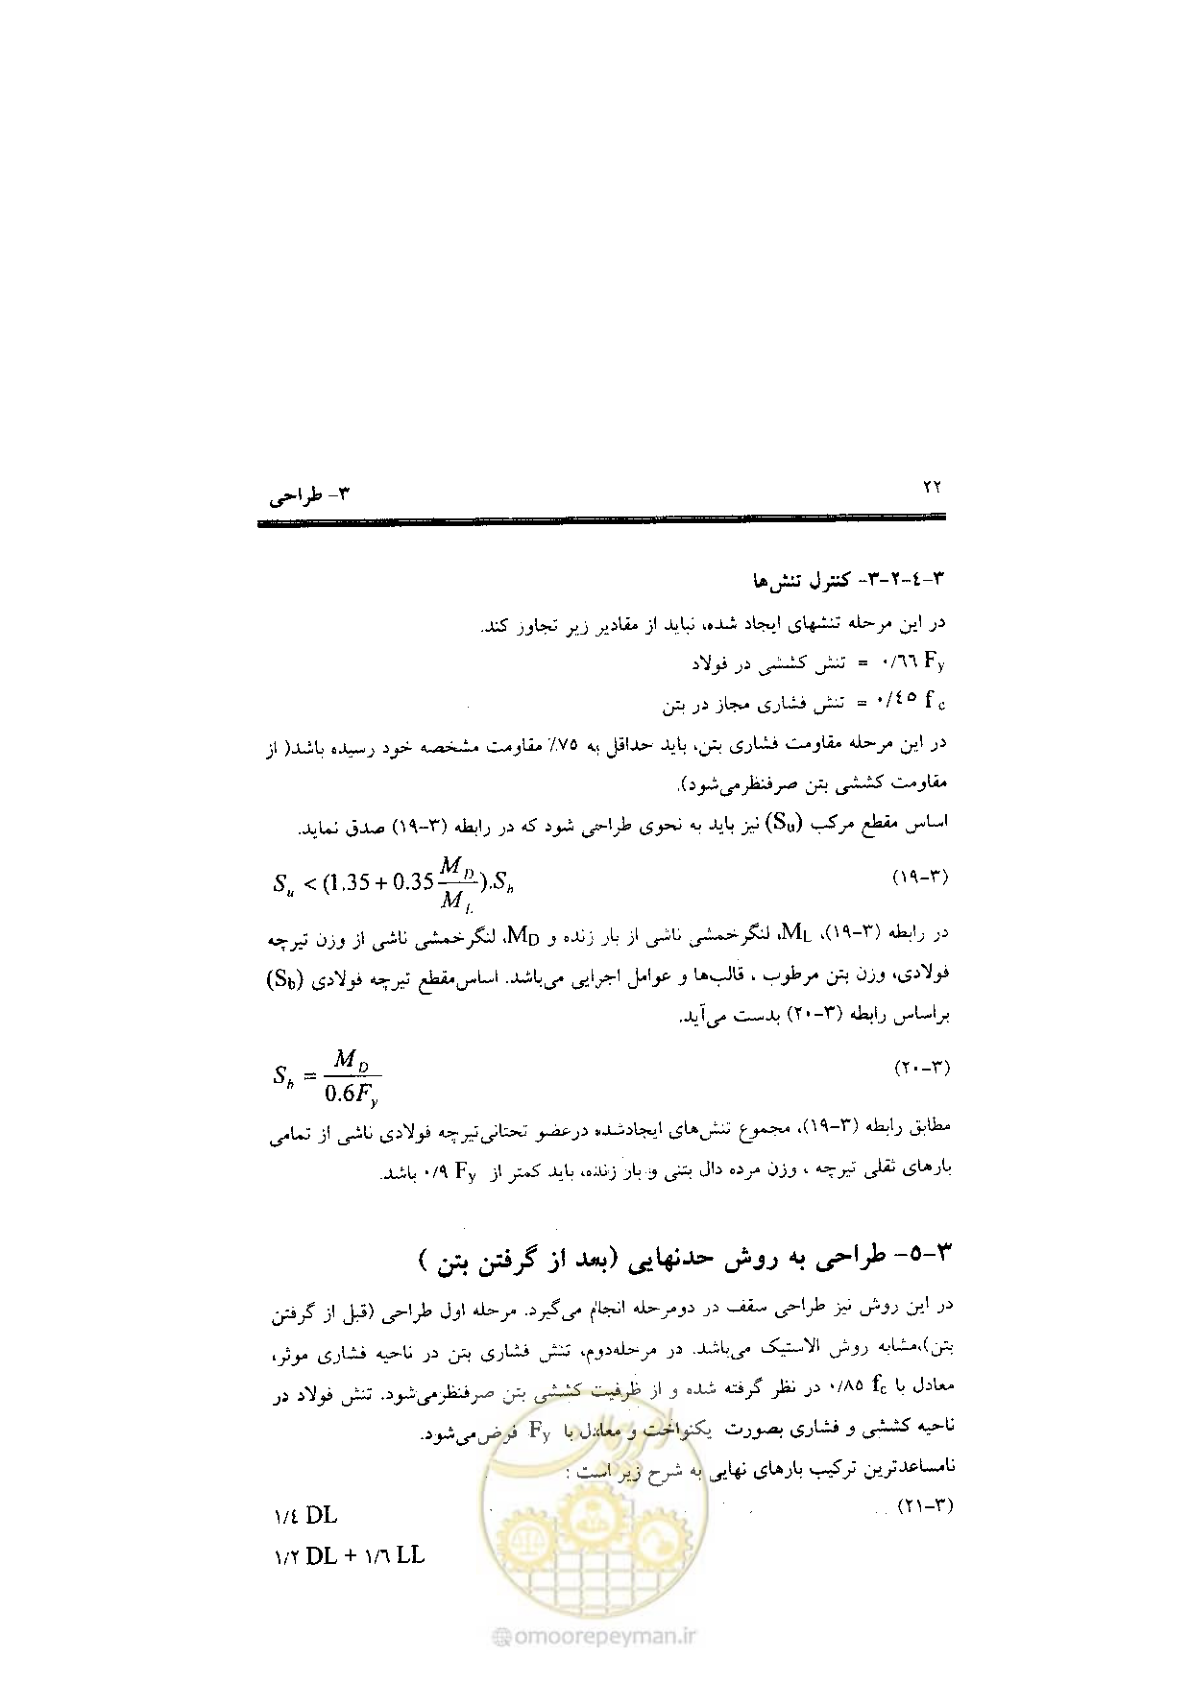 ۲۲
۳- طراحی
۳-۴-۲-۳- کنترل تنش‌ها
در این مرحله تنشهای ایجاد شده، نباید از مقادیر زیر تجاوز کند.
۰/۶۶ Fy = تنش کششی در فولاد
۰/۴۵ fc = تنش فشاری مجاز در بتن
در این مرحله مقاومت فشاری بتن، باید حداقل به ۷۵٪ مقاومت مشخصه خود رسیده باشد( از
مقاومت کششی بتن صرفنظرمی‌شود).
اساس مقطع مرکب (Su) نیز باید به نحوی طراحی شود که در رابطه (۳-۱۹) صدق نماید.
(۳-۱۹) S_u < (1.35 + 0.35 M_D/M_L).S_b
در رابطه (۳-۱۹)، ML، لنگرخمشی ناشی از بار زنده و MD، لنگرخمشی ناشی از وزن تیرچه
فولادی، وزن بتن مرطوب ، قالب‌ها و عوامل اجرایی می‌باشد. اساس‌مقطع تیرچه فولادی (Sb)
براساس رابطه (۳-۲۰) بدست می‌آید.
(۳-۲۰) S_b = M_D/0.6F_y
مطابق رابطه (۳-۱۹)، مجموع تنش‌های ایجادشده درعضو تحتانی‌تیرچه فولادی ناشی از تمامی
بارهای ثقلی تیرچه ، وزن مرده دال بتنی و بار زنده، باید کمتر از ۰/۹ Fy باشد.
۳-۵- طراحی به روش حدنهایی (بعد از گرفتن بتن )
در این روش نیز طراحی سقف در دومرحله انجام می‌گیرد. مرحله اول طراحی (قبل از گرفتن
بتن)،مشابه روش الاستیک می‌باشد. در مرحله‌دوم، تنش فشاری بتن در ناحیه فشاری موثر،
معادل با ۰/۸۵ fc در نظر گرفته شده و از ظرفیت کششی بتن صرفنظرمی‌شود. تنش فولاد در
ناحیه کششی و فشاری بصورت یکنواخت و معادل با Fy فرض‌می‌شود.
نامساعدترین ترکیب بارهای نهایی به شرح زیر است :
(۳-۲۱) ۱/۴ DL
۱/۲ DL + ۱/۶ LL
امور پیمان
@omoorepeyman.ir